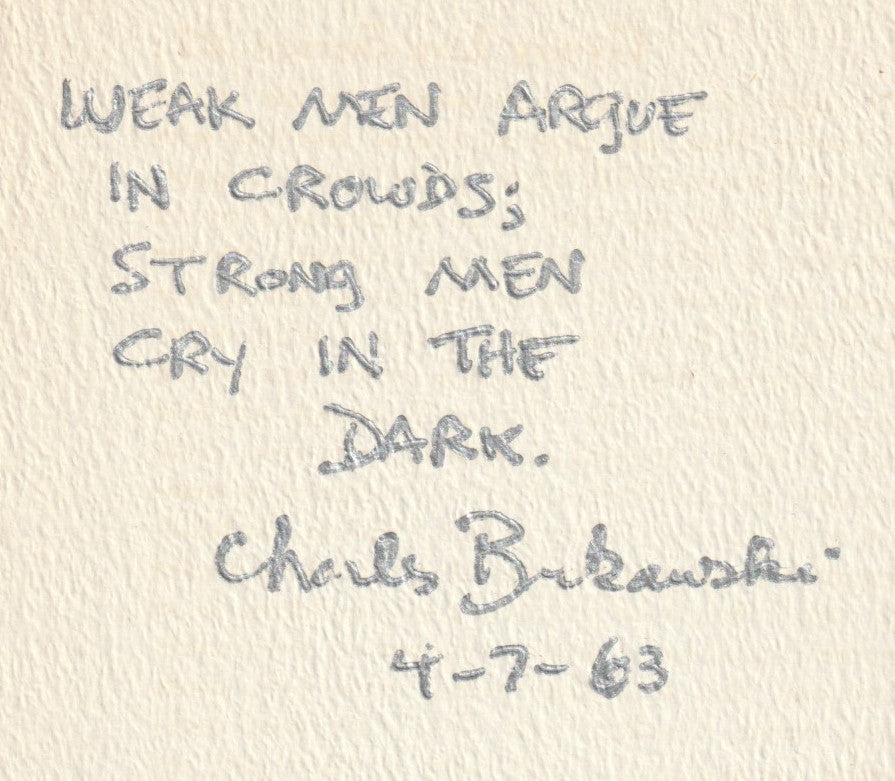 WEAK MEN ARGUE
IN CROWDS;
STRONG MEN
CRY IN THE
DARK.
Charles Bukowski
4-7-63